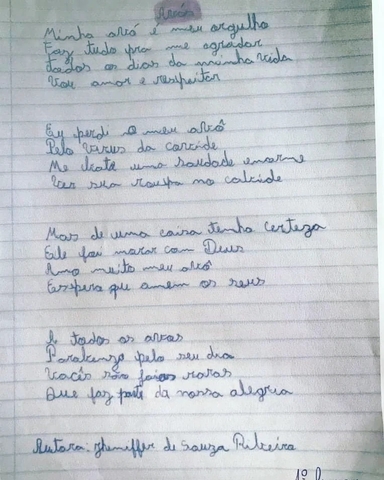 Avós
Minha avó é meu orgulho
Faz tudo pra me agradar
Todos os dias da minha vida
Vou amor e respeitar
Eu perdi o meu avô
Pelo vírus da covide
Me bate uma saudade enorme
Ver sua roupa no cabide
Mas de uma coisa tenho certeza
Ele foi morar com Deus
Amo muito meu avô
Espero que amem os seus
A todos os avós
Parabenzo pelo seu dia
Vocês são joias raras
Que faz parte da nossa alegria
Autora: Jheniffer de Souza Ribeira
1º